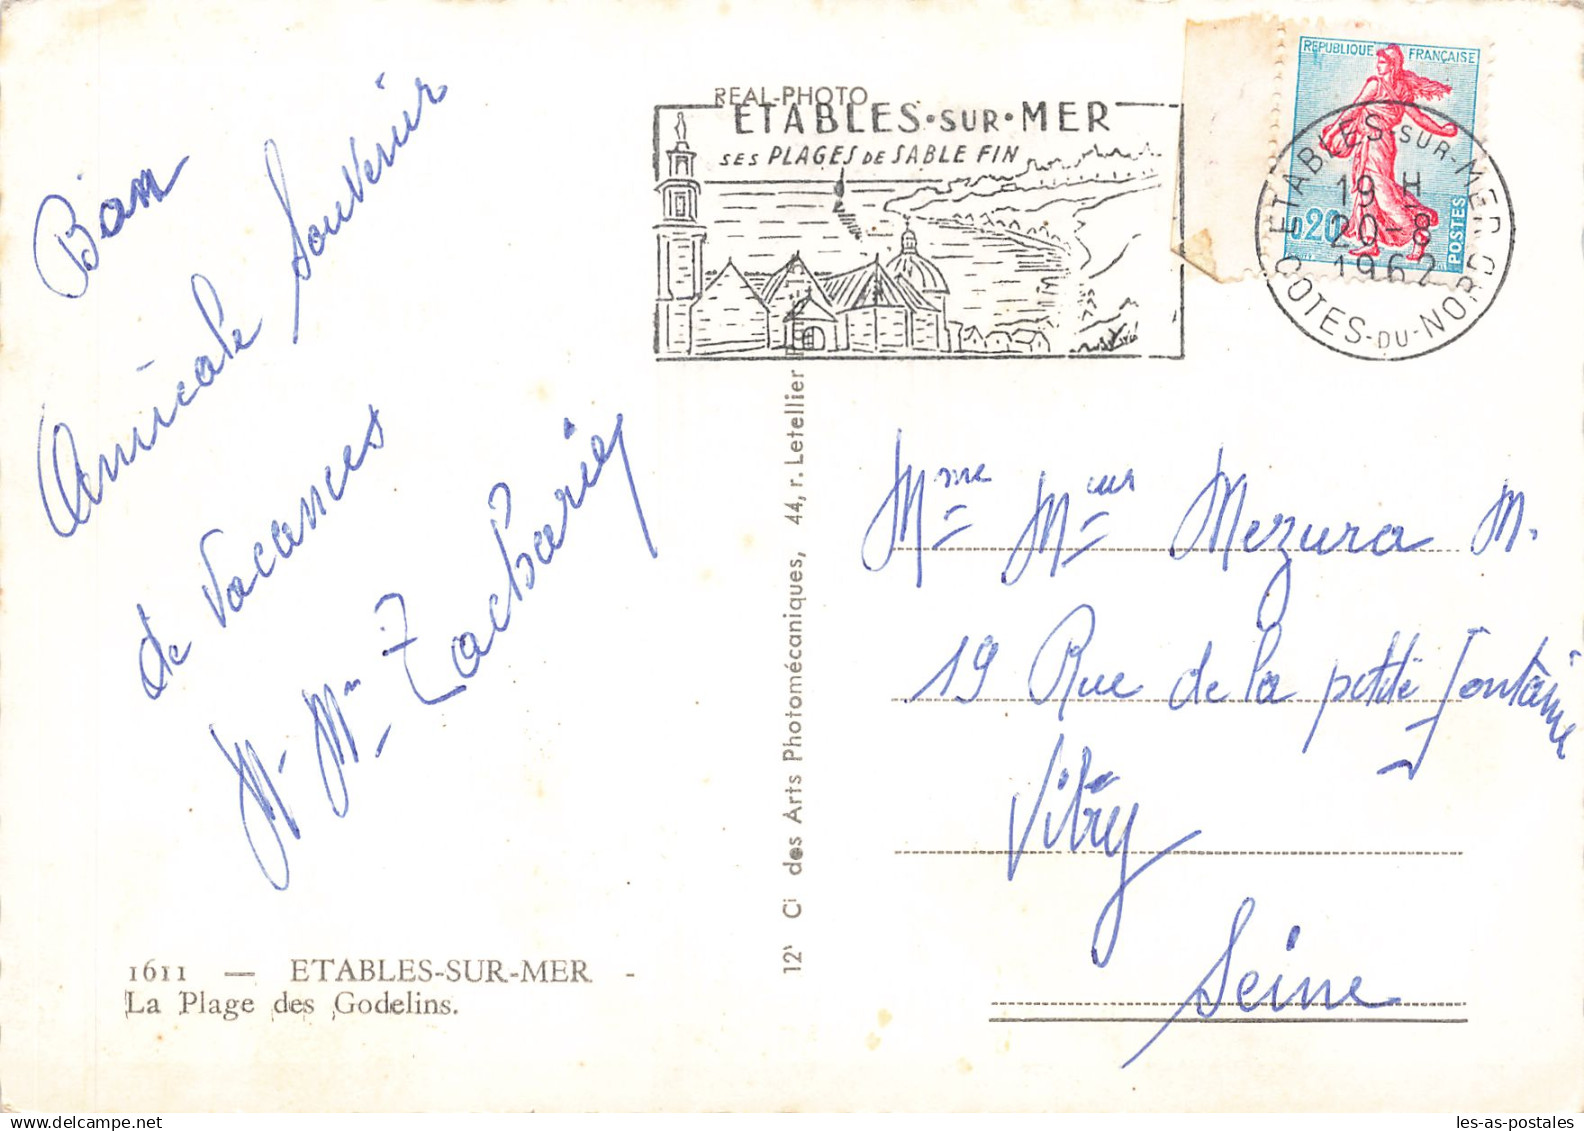 Bon
Amicale Souvenir
de Vacances
Mr Mme Zacharie
1611 — ETABLES-SUR-MER -
La Plage des Godelins.
REAL-PHOTO
ETABLES·SUR·MER
SES PLAGES DE SABLE FIN
des Arts Photomécaniques, 44, r. Letellier
REPUBLIQUE FRANÇAISE
0,20
POSTES
ETABLES-SUR-MER
19 H
20-8
1962
COTES-DU-NORD
Mme Meur Mezura M.
19 Rue de la petite Fontaine
Vitry
Seine
les-as-postales
Delcampe.net